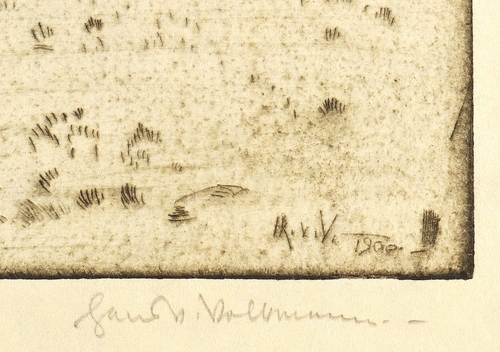 HR. v. V. 1900.
Hans v. Volkmann. -